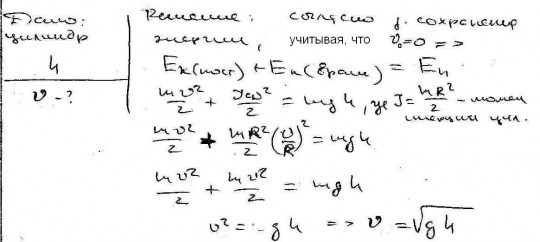 Дано: цилиндр
h
v - ?
Решение: согласно з. сохранения
энергии, учитывая, что v₀=0 =>
Eк(пост) + Eк(вращ) = Eп
mv²/2 + Jω²/2 = mgh, где J = mR²/2 - момен инерции цил.
mv²/2 + mR²/2 (v/R)² = mgh
mv²/2 + mv²/2 = mgh
v² = gh => v = √gh